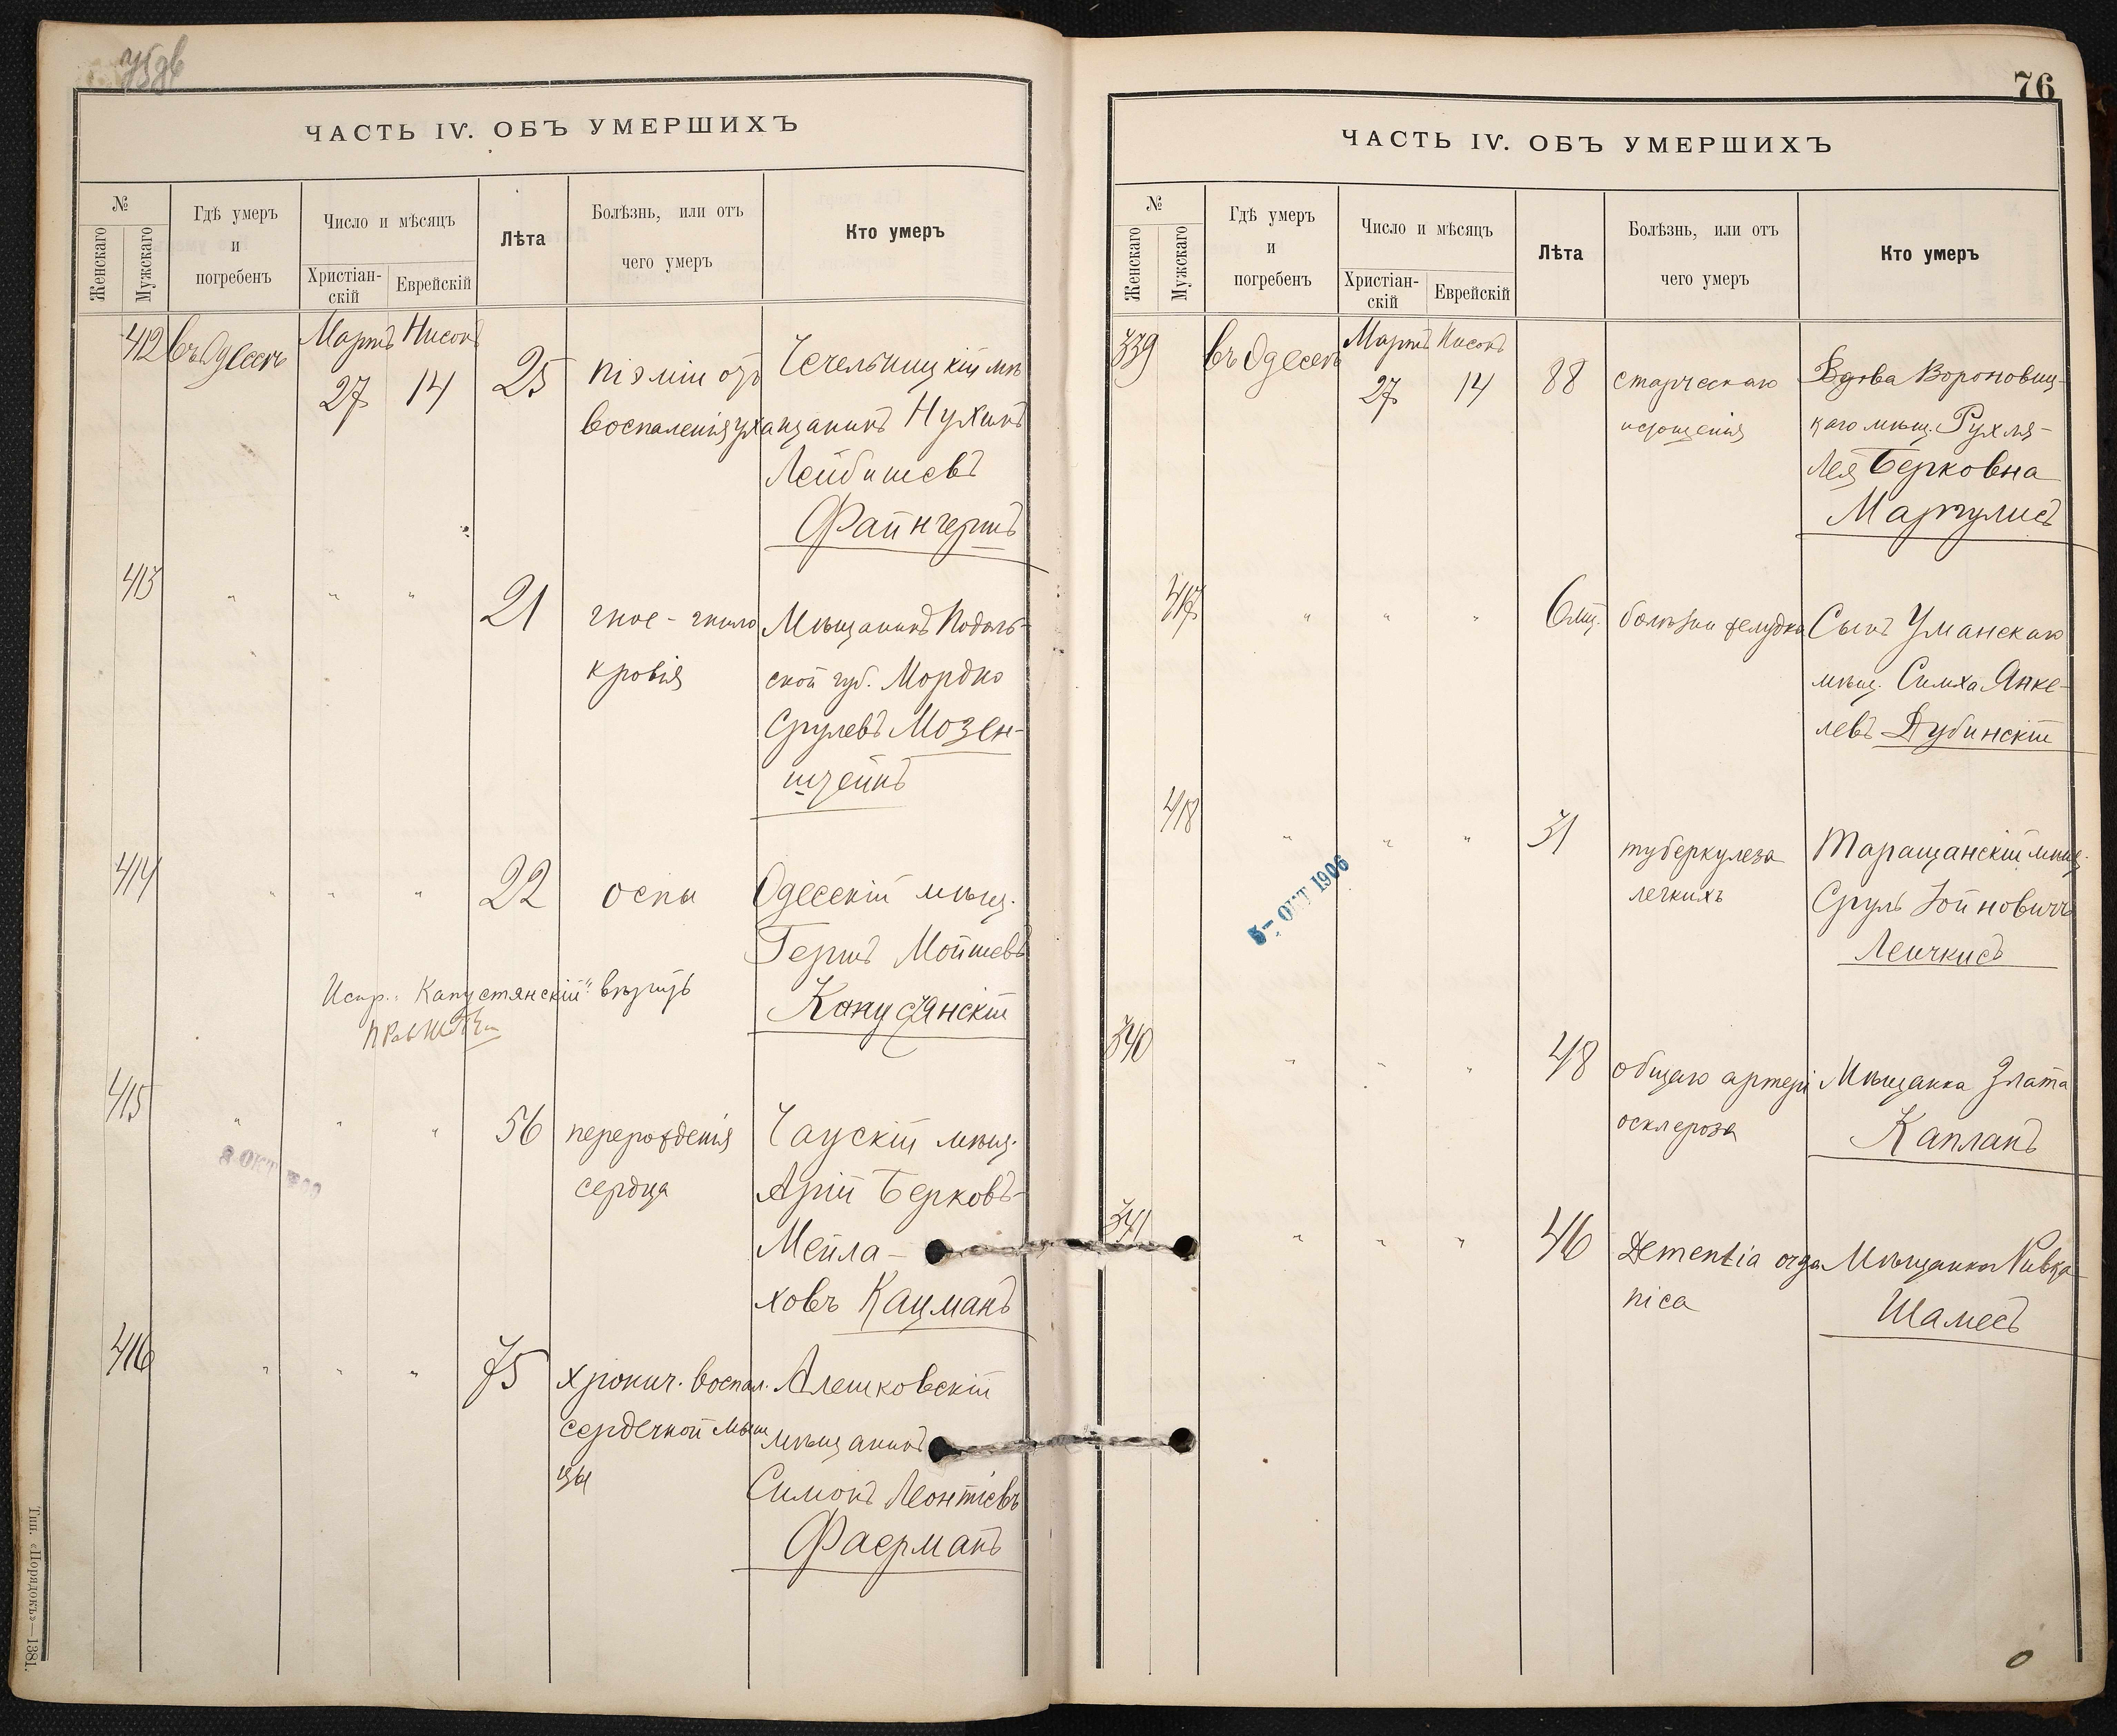 ЧАСТЬ IV. ОБЪ УМЕРШИХЪ
№
Женскаго
Мужскаго
Гдѣ умеръ
и
погребенъ
Число и мѣсяцъ
Христіан-
скій
Еврейскій
Лѣта
Болѣзнь, или отъ
чего умеръ
Кто умеръ
412 въ Одессѣ Мартъ Нисонъ
27 14 25 піэміи отъ Чечельницкій мѣ
воспаленія уха щанинъ Нухинъ
Лейбишевъ
Файнгершъ
413 " " " 21 гное-гнило Мѣщанинъ Подоль-
кровія ской губ. Мордко
Срулевъ Мозен-
штейнъ
414 " " " 22 оспы Одесскій мѣщ.
Гершъ Мойшевъ
Испр.: "Капустянскій" вѣрить
Капустянскій
415 " " " 56 перерожденія Чаускій мѣщ.
сердца Арій Берковъ-
Мейла-
ховъ Кацманъ
8 ОКТ
416 " " " 75 хронич. воспал. Алешковскій
сердечной мыш мѣщанинъ
цы Симонъ Леонтіевъ
Фаерманъ
Тип. «Порядокъ»—1381.
76
ЧАСТЬ IV. ОБЪ УМЕРШИХЪ
№
Женскаго
Мужскаго
Гдѣ умеръ
и
погребенъ
Число и мѣсяцъ
Христіан-
скій
Еврейскій
Лѣта
Болѣзнь, или отъ
чего умеръ
Кто умеръ
339 въ Одессѣ Мартъ Нисонъ
27 14 88 старческаго Вдова Вороновиц-
истощенія каго мѣщ. Рухля-
Лея Берковна
Маргулисъ
417 " " " 6 мц. болѣзни желудка Сынъ Уманскаго
мѣщ. Симха Янке-
левъ Дубинскій
418 " " " 31 туберкулеза Таращанскій мѣщ.
легкихъ Сруль Іойновичъ
Леичкисъ
5- ОКТ 1906
340 " " " 48 общаго артері Мѣщанка Злата
осклероза Капланъ
341 " " " 46 Dementia orga Мѣщанка Ривка
nica Шамесъ